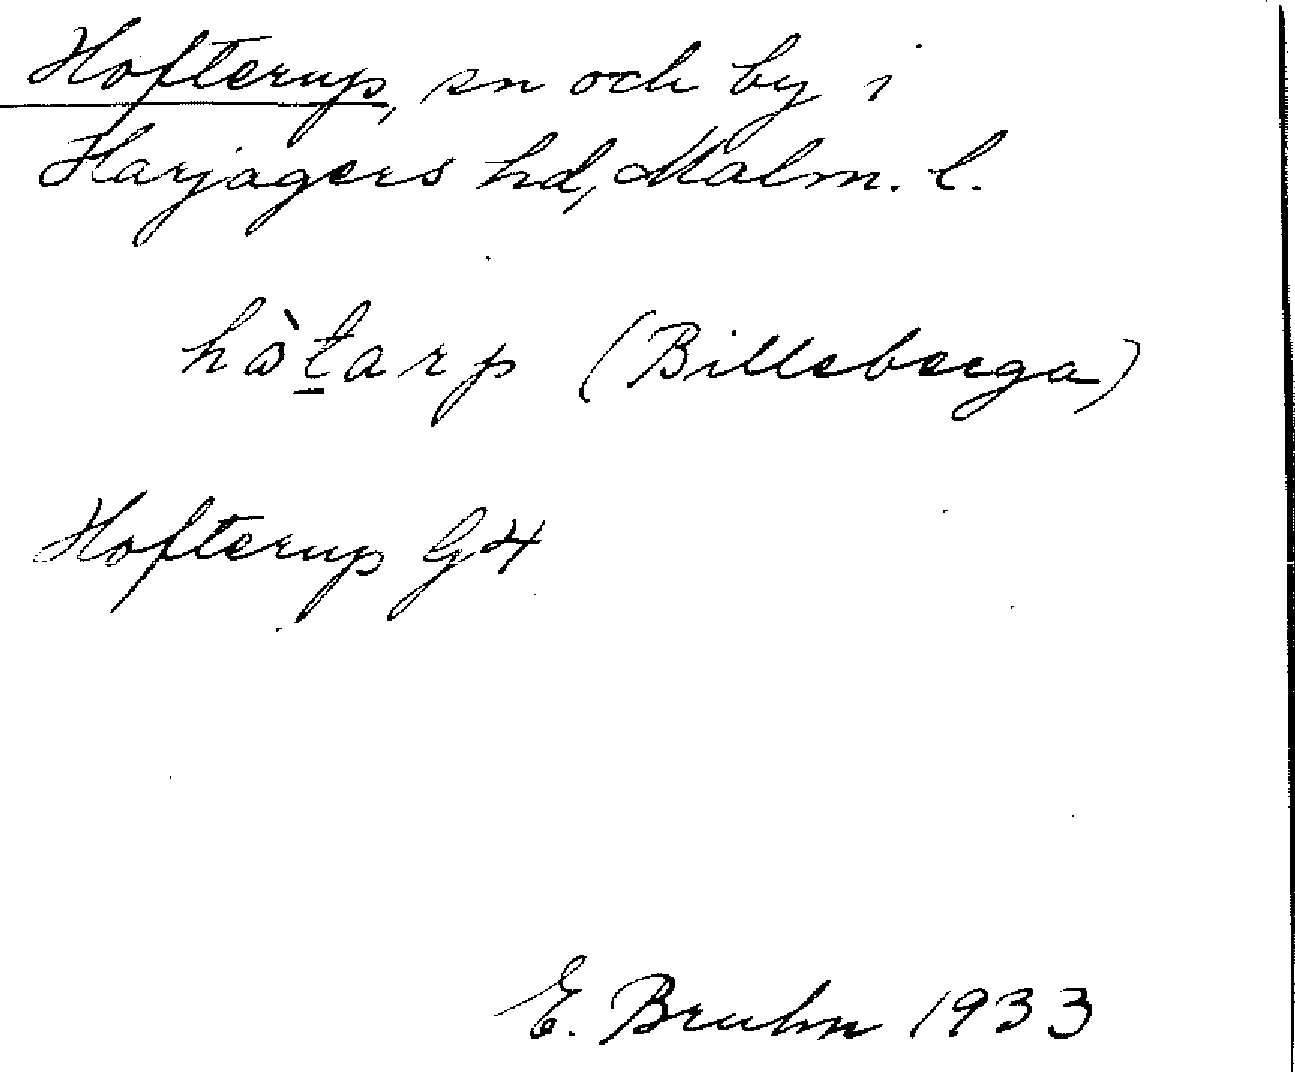 Hofterup, sn och by i
Harjagers hd, Malm. l.
hòt̲arp (Billeberga)
Hofterup G4
E. Bruhn 1933